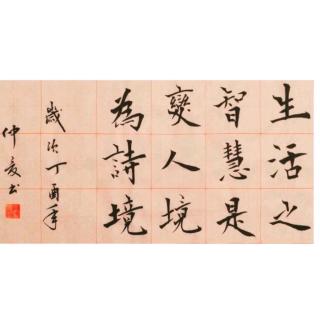 生活之
智慧是
變人境
為詩境
歲次丁酉年
仲爰书